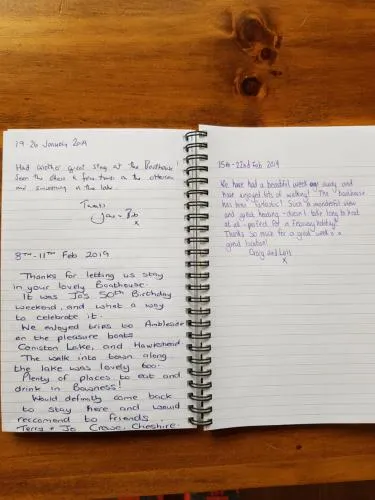 19-26 January 2019
Had another great stay at the Boathouse!
Seen the otters a few times in the
and swimming in the lake.
Thanks
Jane + Bob
x
8TH - 11TH Feb 2019
Thanks for letting us stay
in your lovely Boathouse.
It was Jo's 50th Birthday
weekend, and what a way
to celebrate it.
We enjoyed trips to Ambleside
on the pleasure boats
Coniston Lake, and Hawkshead.
The walk into town along
the lake was lovely too.
Plenty of places to eat and
drink in Bowness!
Would definitly come back
to stay here and would
reccomend to friends.
Terry + Jo Crewe, Cheshire.
15th - 22nd Feb 2019
We have had a beautiful week away and
have enjoyed lots of walking! The boathouse
has been fantastic! Such a wonderful view
and great heating - doesn't take long to heat
at all - perfect for a February holiday!
Thanks so much for a great week in a
great location!
Craig and
x